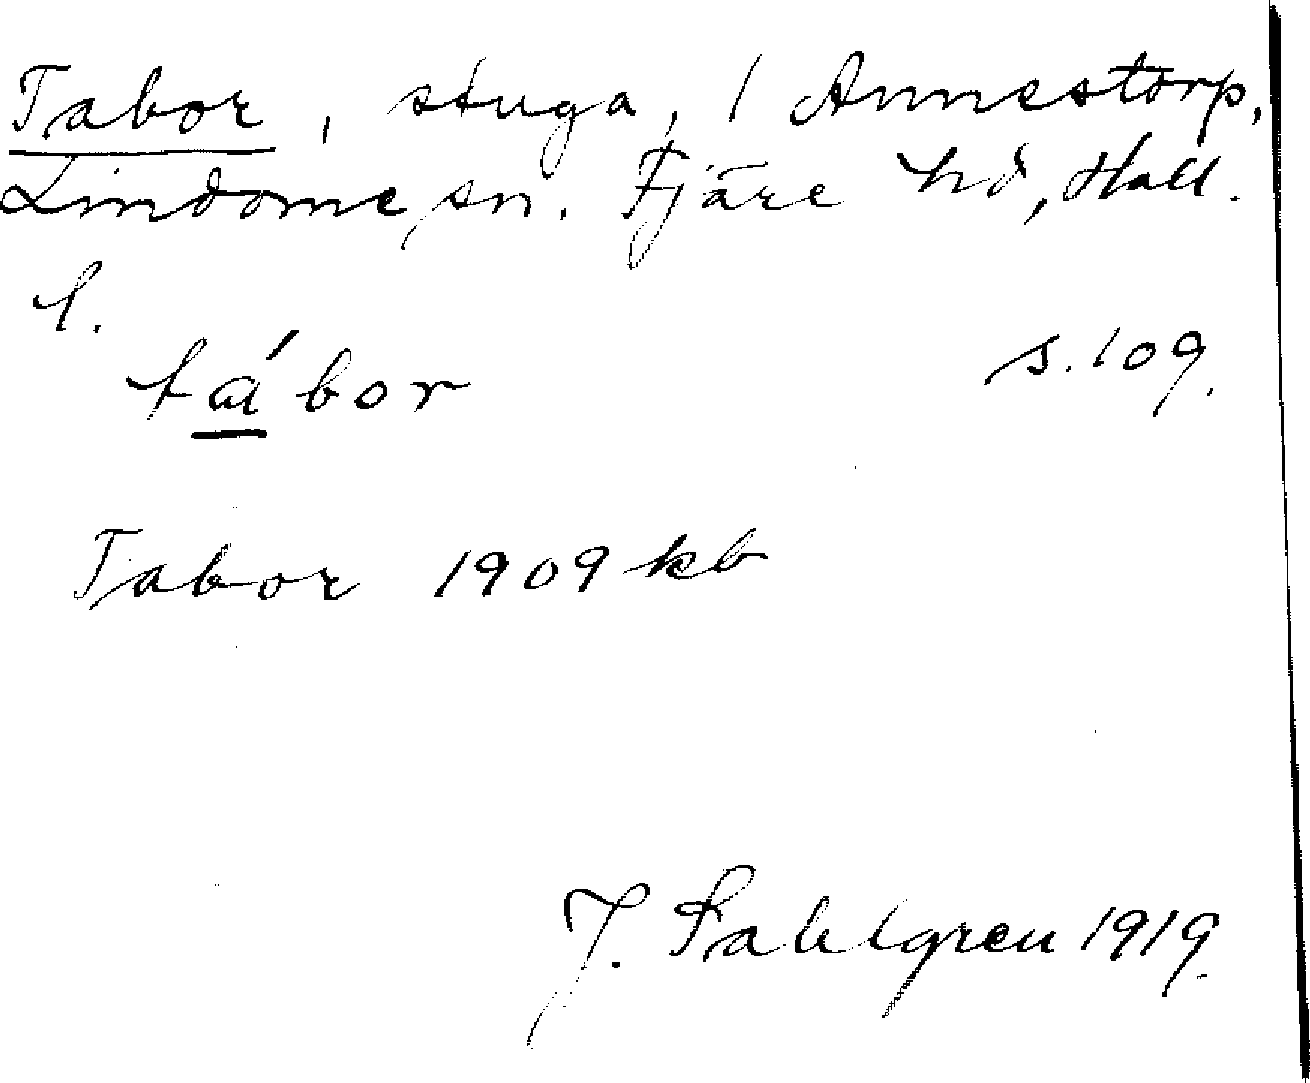 Tabor, stuga, / Annestorp,
Lindome sn. Fjäre hd, Hall.
l.
tábor s. 109.
Tabor 1909 kb
J. Sahlgren 1919.